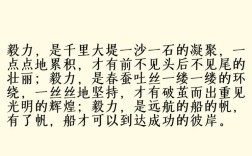 毅力，是千里大堤一沙一石的凝聚，一
点点地累积，才有前不见头后不见尾的
壮丽；毅力，是春蚕吐丝一缕一缕的环
绕，一丝丝地坚持，才有破茧而出重见
光明的辉煌；毅力，是远航的船的帆，
有了帆，船才可以到达成功的彼岸。